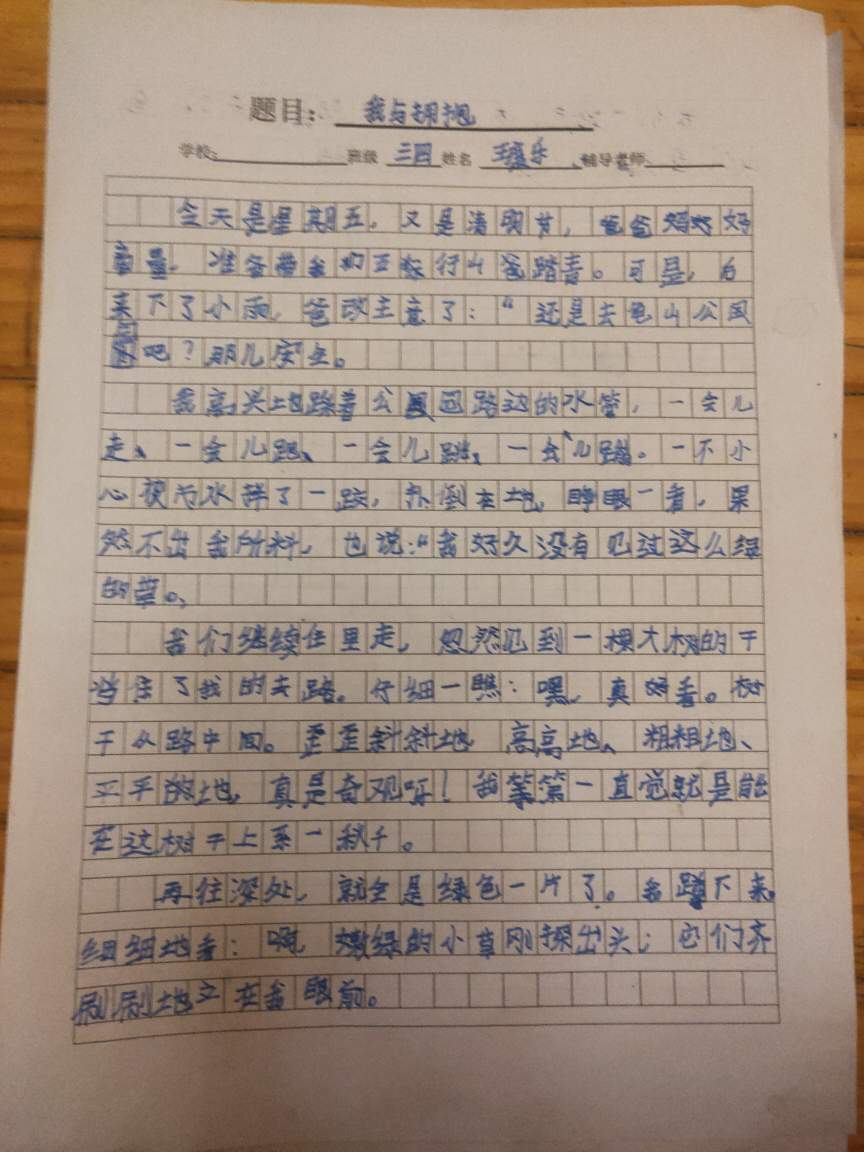 题目：我与拥抱
学校： 班级 三四 姓名 王 乐 辅导老师
今天是星期五，又是清明节，爸爸妈妈
商量，准备带我们去 行山 踏青。可是，
来下了小雨，爸改主意了：“还是去 山公园
吧？那儿安全。
我高兴地踩着公园 路边的水管，一会儿
走、一会儿跑、一会儿跳、一会儿蹦。一不小
心 水 了一跤，扑倒在地，睁眼一看，果
然不出我所料，也说：“我好久没有见过这么绿
的草。
我们继续往里走，忽然见到一棵大树的干
当住了我的去路。仔细一瞧：嘿，真好看。树
干从路中间。歪歪斜斜地、高高地、粗粗地、
平平的地，真是奇观呀！我 第一直觉就是能
在这树干上系一秋千。
再往深处，就全是绿色一片了。我蹲下来，
细细地看：啊，嫩绿的小草刚探出头；它们齐
刷刷地立在我眼前。